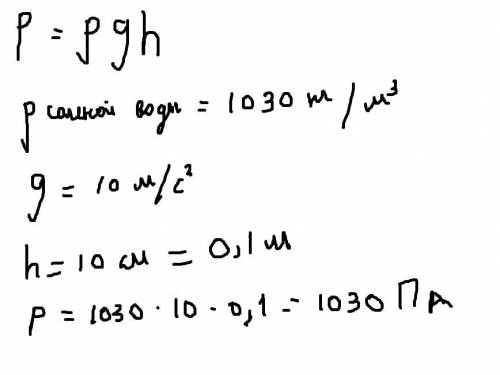 p = ρgh
ρ соленой воды = 1030 кг/м³
g = 10 м/с²
h = 10 см = 0,1 м
P = 1030 · 10 · 0,1 = 1030 Па